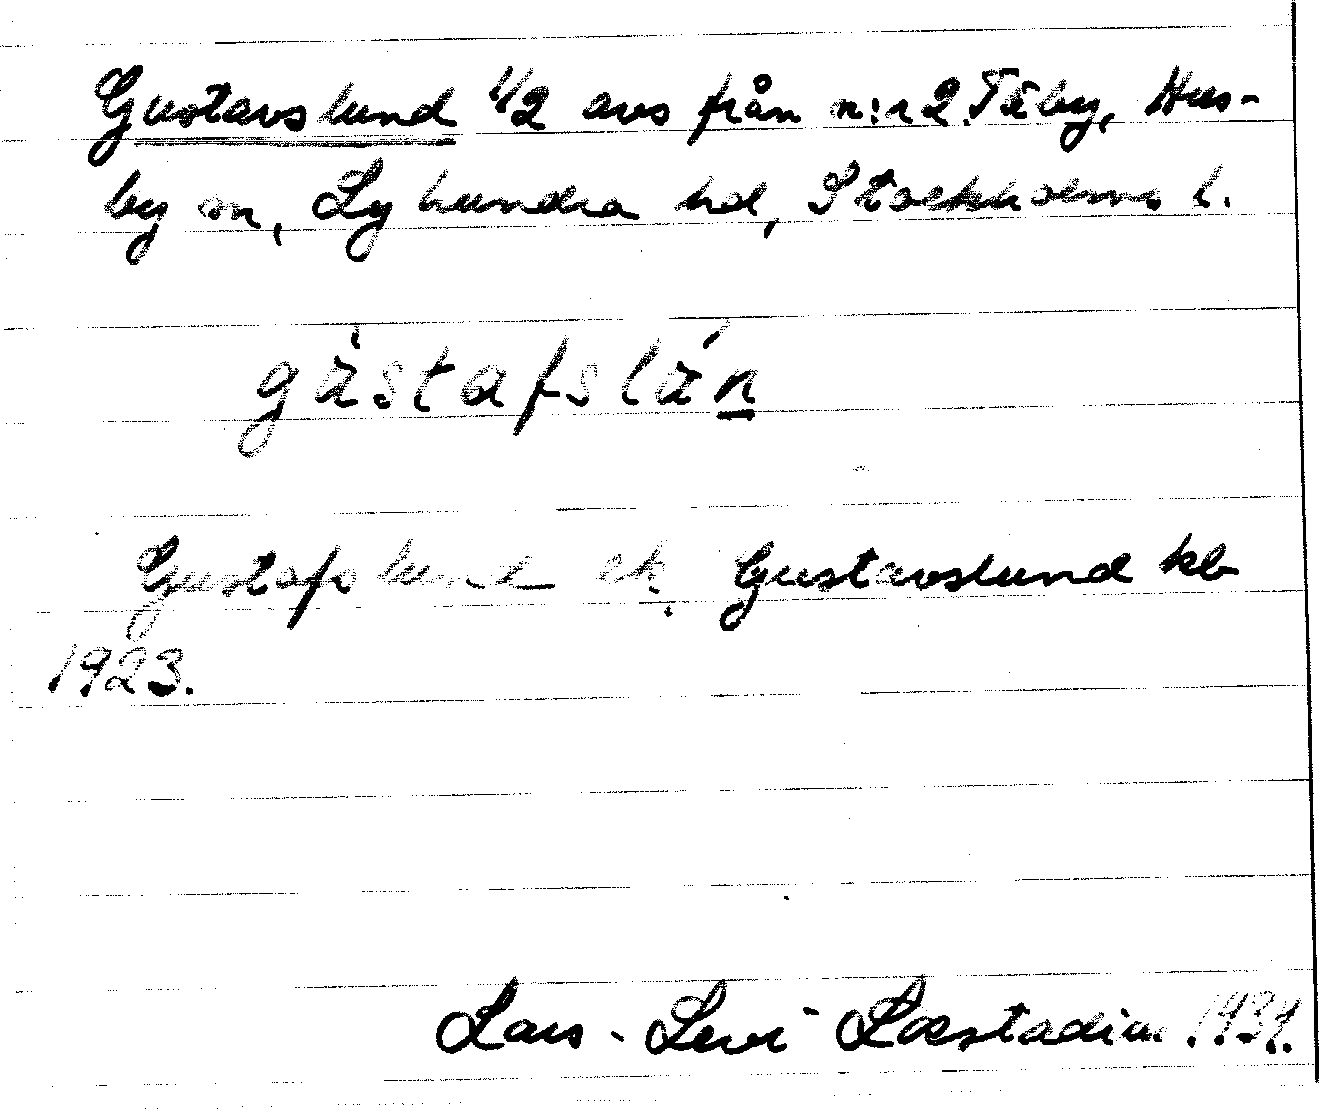 Gustavslund 1/2 avs från n:r 2 Täby, Hus-
by sn, Lyhundra hd, Stockholms l.
gästafslän
Gustafslund ek, Gustavslund kb
1923.
Lars-Levi Læstadius 1931.